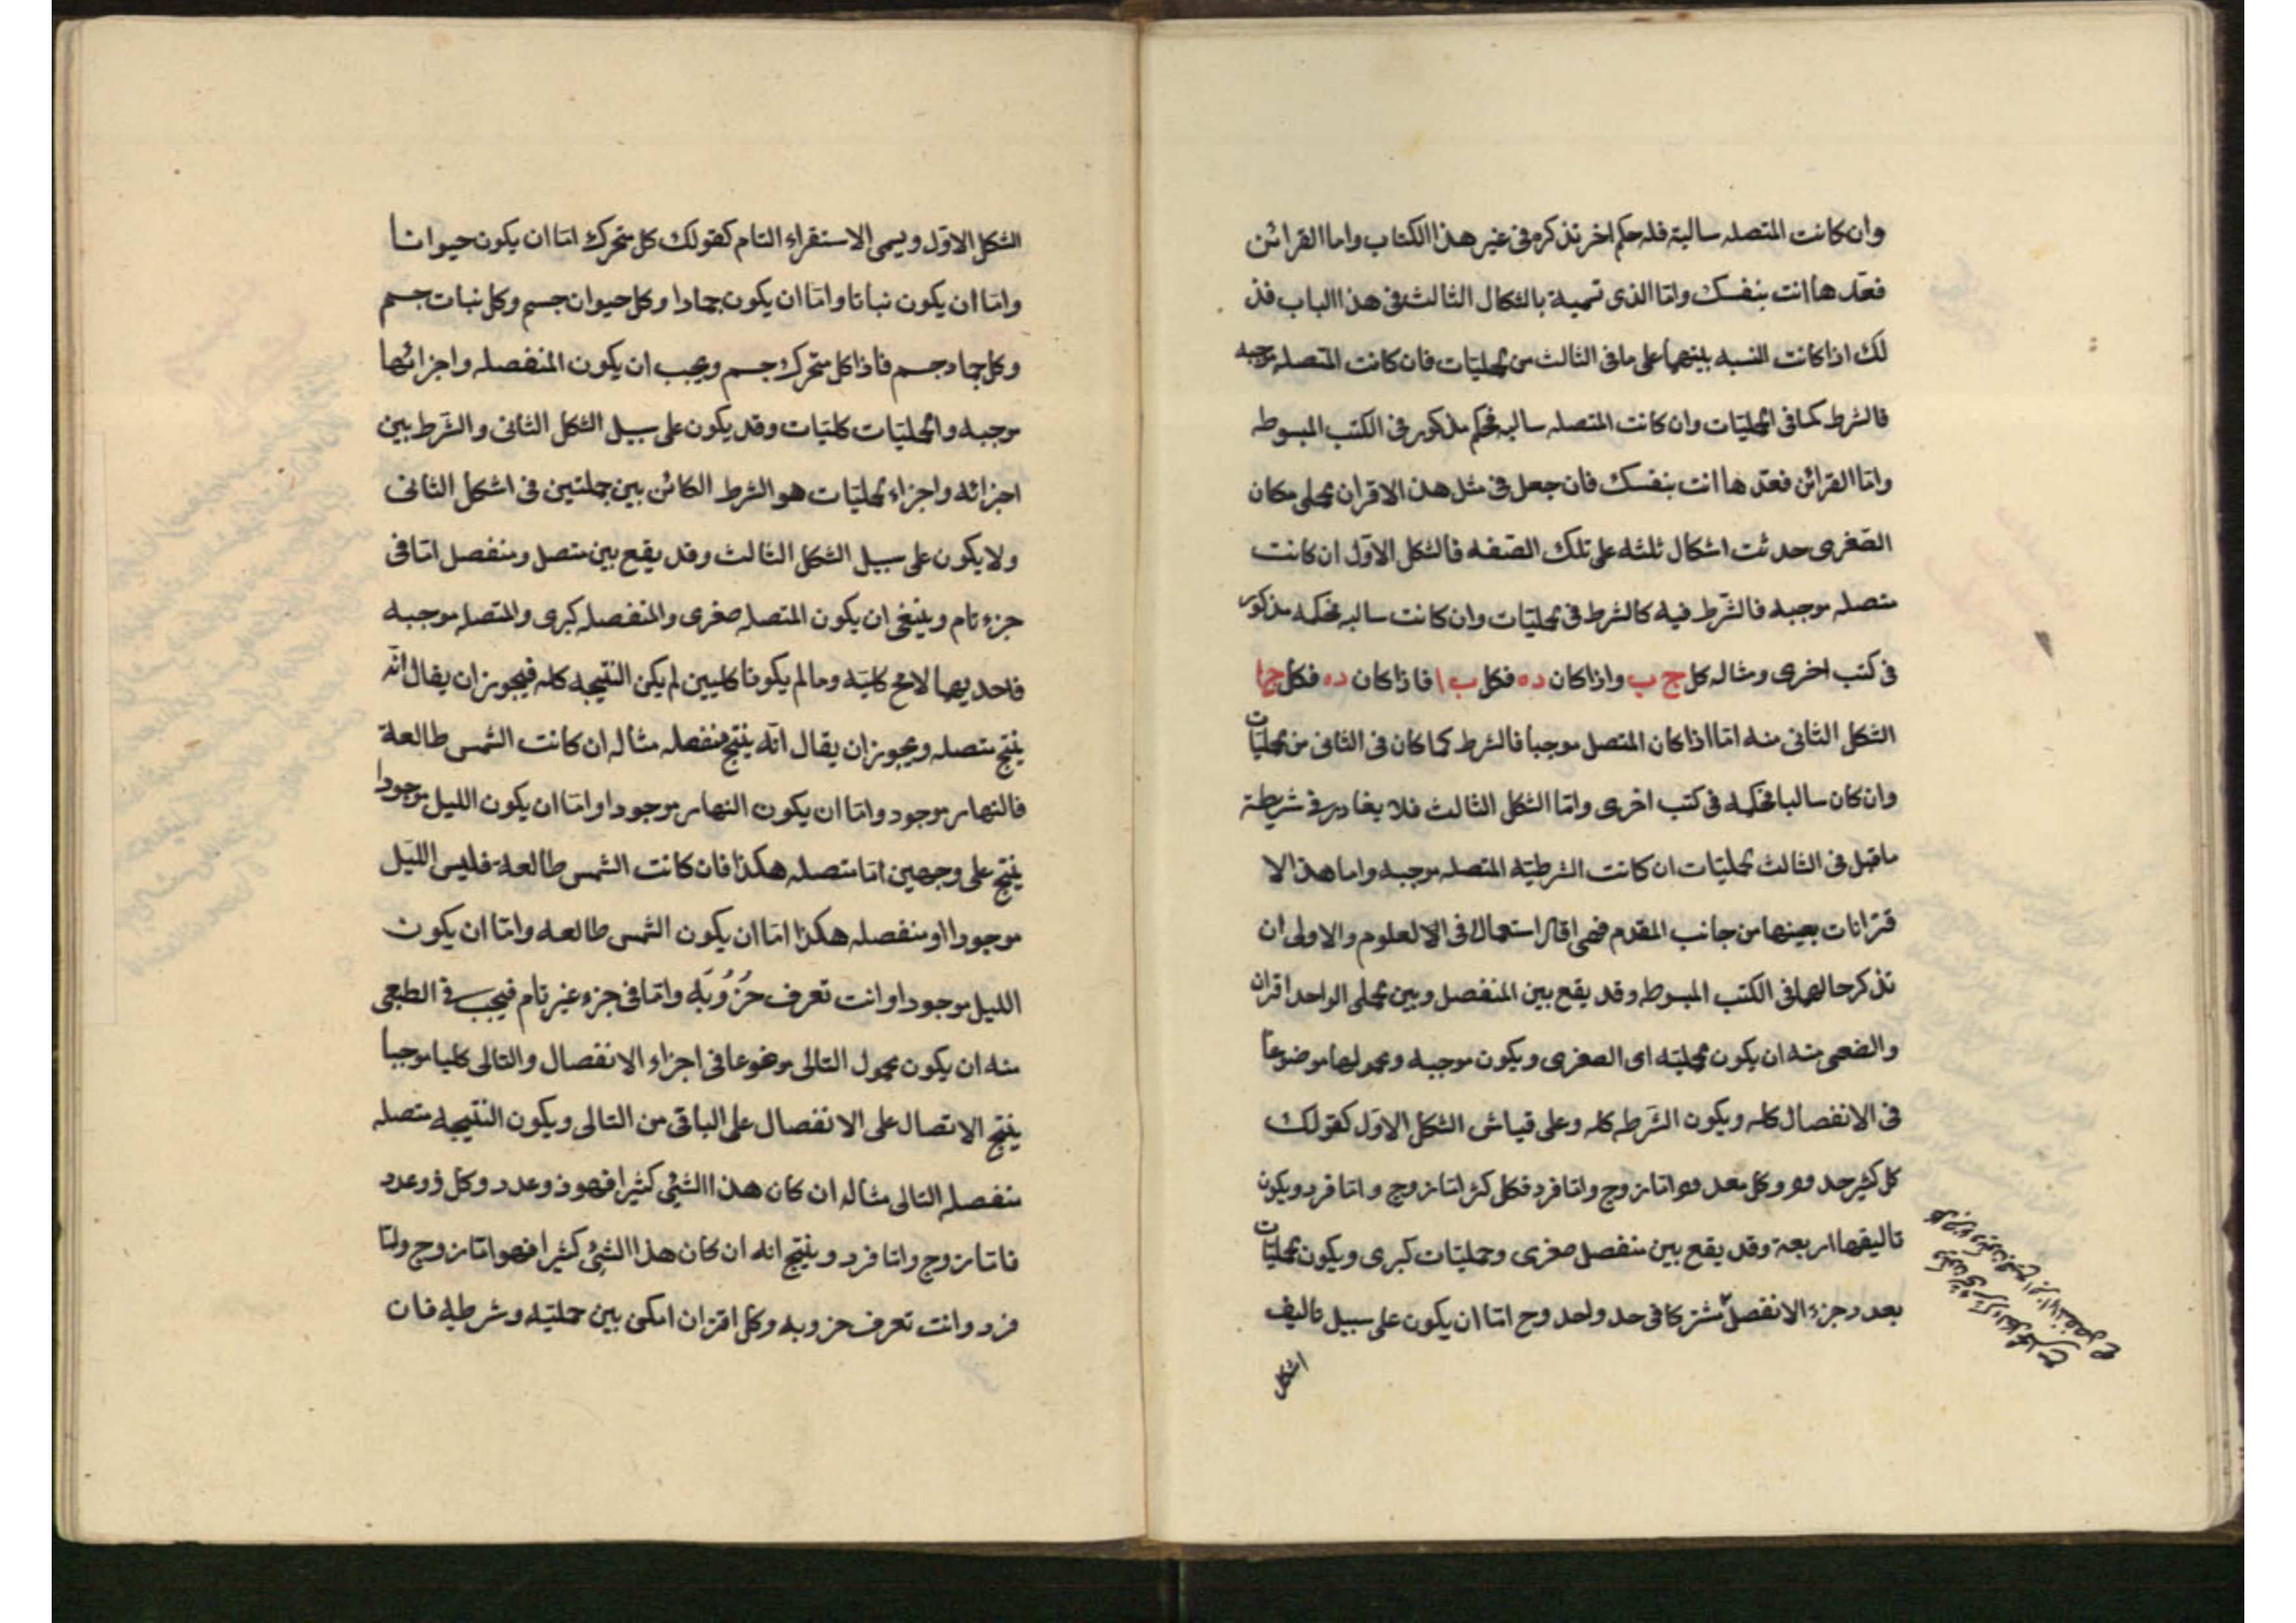 وان كانت المتصله سالبة فله حكم اخر نذكره فى غير هذا الكتاب واما القرائن
فعدّها انت بنفسك وامّا الذى تسمية بالشكال الثالث فى هذا الباب فذ
لك اذا كانت النسبه بينهما على ما فى الثالث من الحمليّات فان كانت المتصله موجبه
فالشرط كما فى الحمليّات وان كانت المتصله سالبه فحكم مذكور فى الكتب المبسوطه
وامّا القرائن فعدّها انت بنفسك فان جعل فى مثل هذا الاقران الحملى مكان
الصّغرى حدثت اشكال ثلثه على تلك الصّفه فالشكل الاوّل ان كانت
متصله موجبه فالشّرط فيه كالشرط فى الحمليّات وان كانت سالبه فحكمه مذكور
فى كتب اخرى ومثاله كل ج ب واذا كان ده فكل ب ا فاذا كان ده فكل ج ا
الشكل الثانى منه امّا اذا كان المتصل موجبا فالشرط كما كان فى الثانى من الحمليّات
وان كان سالبا فحكمه فى كتب اخرى وامّا الشكل الثالث فلا يغادر فى شريطة
ما قبل فى الثالث الحمليّات ان كانت الشرطيّه المتصله موجبه واما هذا الا
قترانات بعينها من جانب المقدم فهى اقل استعمالا فى الالعلوم والاولى ان
نذكر حالها فى الكتب المبسوطه وقد يقع بين المنفصل وبين الحملى الواحد اقران
والضعى منه ان يكون الحمليّه اى الصغرى ويكون موجبه ومحمولها موضوعاً
فى الانفصال كله ويكون الشّرطه كله وعلى قياش الشكل الاوّل كقولك
كل كثير حد مو وكل معد مو امّا زوج وامّا فرد فكل كثر امّا زوج وامّا فرد ويكون
تاليفها اربعة وقد يقع بين منفصل صغرى وحمليّات كبرى ويكون الحمليّات
بعدد جزء الانفصل مشتركا فى حد واحد وح امّا ان يكون على سبيل تاليف
اشكل
الشكل الاوّل ويسمى الاستقراء التام كقولك كل متحرك امّا ان يكون حيوانا
وامّا ان يكون نباتا وامّا ان يكون جمادا وكل حيوان جسم وكل نبات جسم
وكل جماد جسم فاذا كل متحرك جسم ويجب ان يكون المنفصله واجزائها
موجبه والحمليّات كليّات وقد يكون على سبيل الشكل الثانى والشّرط بين
اجزائه واجزاء الحمليّات هو الشرط الكائن بين جملتين فى اشكل الثانى
ولا يكون على سبيل الشكل الثالث وقد يقع بين متصل ومنفصل امّا فى
جزء تام وينبغى ان يكون المتصله صغرى والمنفصله كبرى والمتصله موجبه
فاحديها لامح كليّه وما لم يكونا كليين لم يكن النتيجه كله فيجوز ان يقال انّه
ينتج متصله ويجوز ان يقال انّه ينتج منفصله مثاله ان كانت الشمس طالعة
فالنهار موجود وامّا ان يكون النهار موجودا وامّا ان يكون الليل موجودا
ينتج على وجهين امّا متصله هكذا فان كانت الشمس طالعة فليس الليل
موجودا او منفصله هكذا امّا ان يكون الشمس طالعه وامّا ان يكون
الليل موجودا وانت تعرف حُزُوبَه وامّا فى جزء غير تام فيجب فى الطبعى
منه ان يكون محمول التالى موضوعا فى اجزاء الانفصال والتالى كليا موجبا
ينتج الاتصال على الانفصال على الباقى من التالى ويكون النتيجه متصله
منفصله التالى مثاله ان كان هذا الشئى كثيرا فهو ذو عدد وكل ذو عدد
فامّا زوج وامّا فرد وينتج انه ان كان هذا الشئ كثيرا فهو امّا زوج وامّا
فرد وانت تعرف حزوبه وكل اقتران امكن بين حمليّه وشرطيه فان